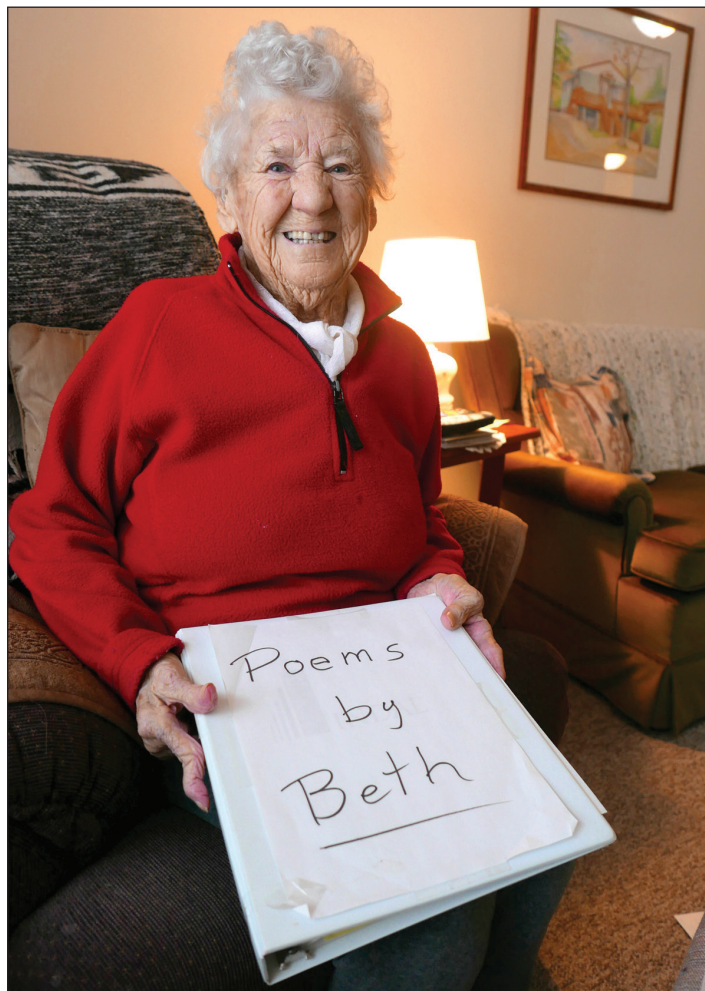 Poems
by
Beth